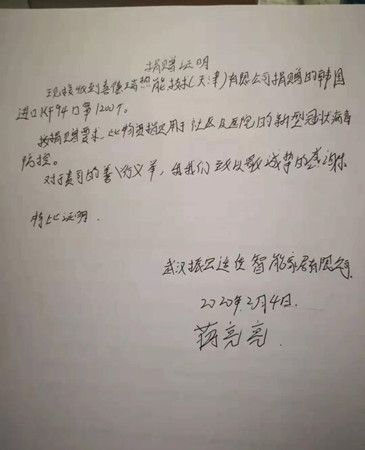 捐赠证明
现接收到喜德瑞热能技术(天津)有限公司捐赠的韩国
进口KF94口罩1200个。
按捐赠要求,此物资指定用于社区及医院的新型冠状病毒
防控。
对于贵司的善心义举,我们致以最诚挚的感谢
特此证明.
武汉振公连优智能家居有限公司
2020年2月4日.
蒋亮亮.